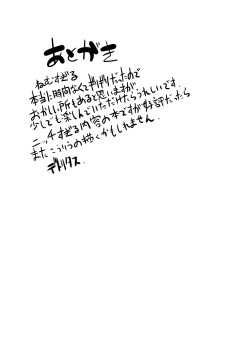 あとがき
ねむすぎる
本当に時間なくてギリギリだったので
おかしい所もあると思いますが、
少しでも楽しんでいただけたらうれしいです。
ニッチすぎる内容の本ですが好評だったら
またこういうの描くかもしれません。
デトリタス